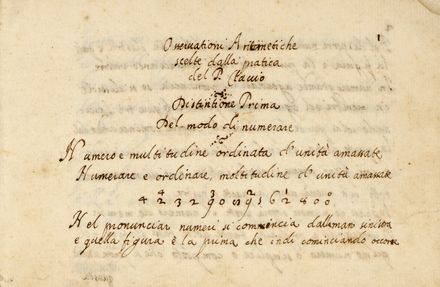 1
Osservationi Aritmetiche
scelte dalla pratica
del P. Clavio
Distintione Prima
Del modo di numerare
Numero e multitudine ordinata d'unità amassate
Numerare e ordinare, moltitudine d'unità amassate
4 3 2 1 0
4 2 3 2 9 0 5 9 1 5 6 2 8 0 0
Nel pronunciar numeri si commincia dalla man sinistra
e quella figura è la prima che indi cominciando occorre